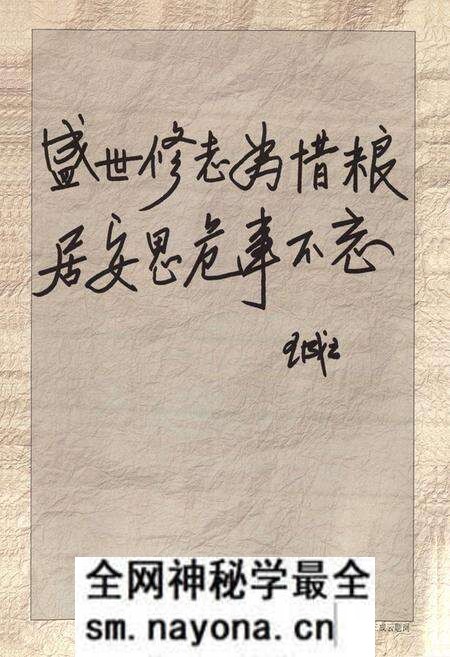 盛世修志为惜粮
居安思危事不忘
全网神秘学最全
sm.nayona.cn